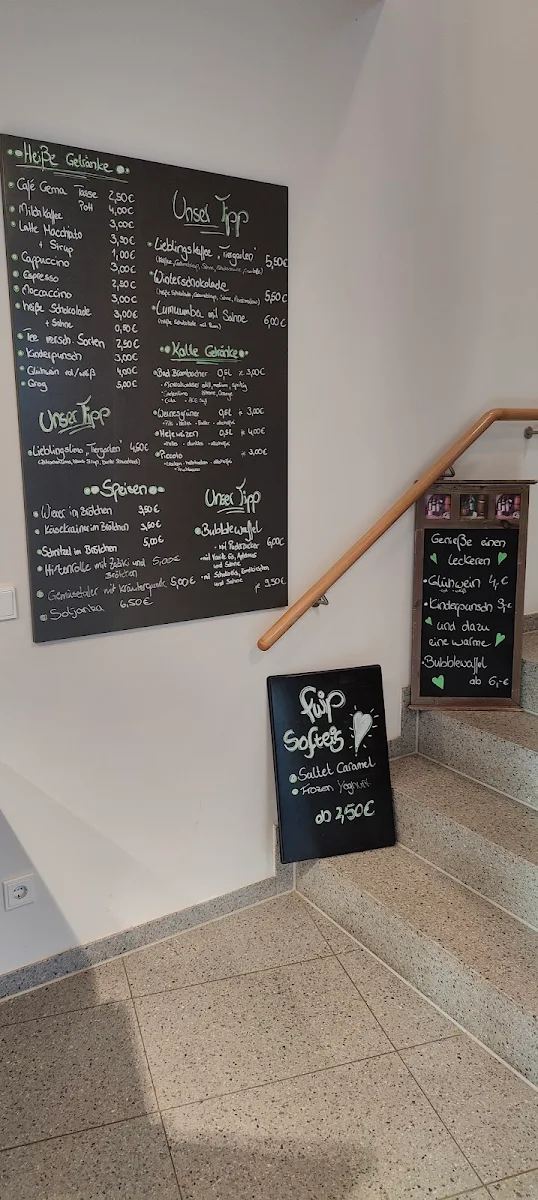 Heiße Getränke
Café Crema Tasse 2,50€
Pott 4,00€
Milchkaffee 3,00€
Latte Macchiato 3,50€
+ Sirup 1,00€
Cappuccino 3,00€
Espresso 2,50€
Moccaccino 3,00€
heiße Schokolade 3,00€
+ Sahne 0,50€
Tee versch. Sorten 2,50€
Kinderpunsch 3,00€
Glühwein rot/weiß 4,00€
Grog 5,00€
Unser Tipp
Lieblingslimo „Tiergarten" 4,50€
Speisen
Wiener im Brötchen 3,50€
Käsekrainer im Brötchen 3,50€
Schnitzel im Brötchen 5,00€
Hirtenrolle mit Zaziki und 5,00€
Brötchen
Gemüsetaler mit Kräuterquark 5,00€
Soljanka 6,50€
Unser Tipp
Lieblingskaffee „Tiergarten" 5,50€
Winterschokolade 5,50€
Lumumba mit Sahne 6,00€
(heiße Schokolade mit Rum)
Kalte Getränke
Bad Brambacher 0,5L 3,00€
Mineralwasser still, medium, spritzig
Gartenlimo Zitrone, Orange
Cola
Wernesgrüner 0,5L 3,00€
Hefeweizen 0,5L 4,00€
Piccolo 3,00€
Unser Tipp
Bubblewaffel
mit Puderzucker 6,00€
und Sahne
und Sahne je 9,50€
Genieße einen
leckeren
Glühwein 4,-€
rot weiß
Kinderpunsch 3,-€
und dazu
eine warme
Bubblewaffel
ab 6,-€
Fwip
Softeis
Saltet Caramel
Frozen Yoghurt
ab 2,50€